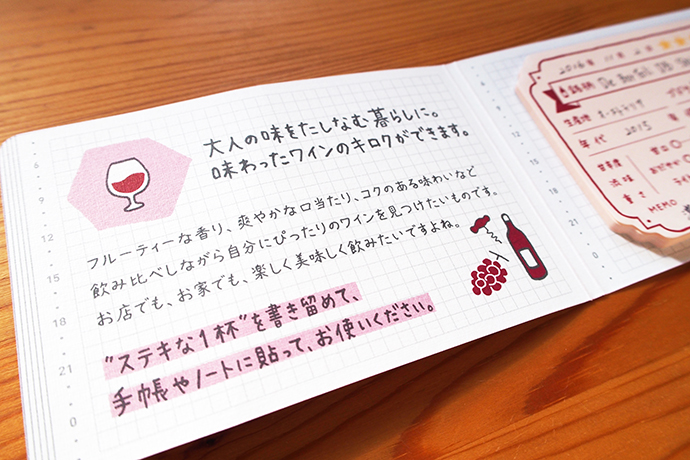 大人の味をたしなむ暮らしに。
味わったワインのキロクができます。
フルーティーな香り、爽やかな口当たり、コクのある味わいなど
飲み比べしながら自分にぴったりのワインを見つけたいものです。
お店でも、お家でも、楽しく美味しく飲みたいですよね。
"ステキな1杯"を書き留めて、
手帳やノートに貼って、お使いください。
6
9
12
15
18
21
0
6
9
12
15
21
0
2016年 11月 2日
銘柄
生産地 オーストラリア
年代 2015
甘口
渋味
重さ
MEMO